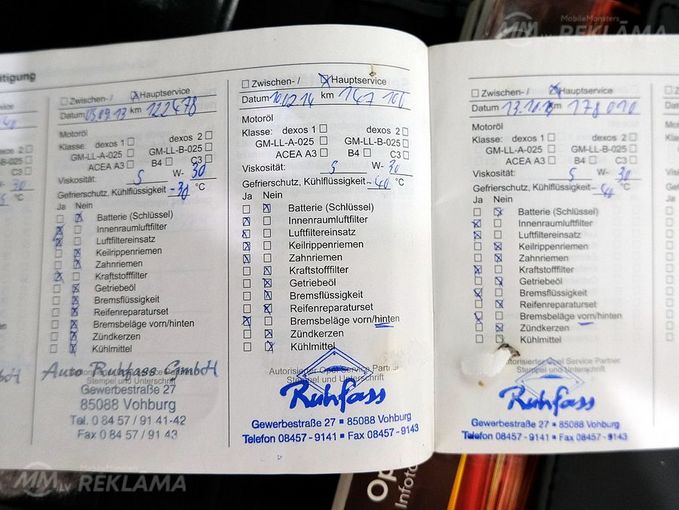 MobileMonsters
MM.LV REKLĀMA
tigung
Zwischen- / Hauptservice
Datum 05.09.13 km 122478
Motoröl
Klasse: dexos 1 dexos 2
GM-LL-A-025 GM-LL-B-025
ACEA A3 B4 C3
Viskosität: 5 W- 30
Gefrierschutz, Kühlflüssigkeit -38 °C
Ja Nein
Batterie (Schlüssel)
Innenraumluftfilter
Luftfiltereinsatz
Keilrippenriemen
Zahnriemen
Kraftstofffilter
Getriebeöl
Bremsflüssigkeit
Reifenreparaturset
Bremsbeläge vorn/hinten
Zündkerzen
Kühlmittel
Auto Ruhfass GmbH
Stempel und Unterschrift
Gewerbestraße 27
85088 Vohburg
Tel. 0 84 57 / 91 41-42
Fax 0 84 57 / 91 43
Zwischen- / Hauptservice
Datum km 147 100
Motoröl
Klasse: dexos 1 dexos 2
GM-LL-A-025 GM-LL-B-025
ACEA A3 B4 C3
Viskosität: 5 W- 30
Gefrierschutz, Kühlflüssigkeit -40 °C
Ja Nein
Batterie (Schlüssel)
Innenraumluftfilter
Luftfiltereinsatz
Keilrippenriemen
Zahnriemen
Kraftstofffilter
Getriebeöl
Bremsflüssigkeit
Reifenreparaturset
Bremsbeläge vorn/hinten
Zündkerzen
Kühlmittel
Autorisierter Opel Service Partner
Stempel und Unterschrift
Ruhfass
Gewerbestraße 27 ▪ 85088 Vohburg
Telefon 08457 - 9141 ▪ Fax 08457 - 9143
Zwischen- / Hauptservice
Datum km 178 010
Motoröl
Klasse: dexos 1 dexos 2
GM-LL-A-025 GM-LL-B-025
ACEA A3 B4 C3
Viskosität: 5 W- 30
Gefrierschutz, Kühlflüssigkeit °C
Ja Nein
Batterie (Schlüssel)
Innenraumluftfilter
Luftfiltereinsatz
Keilrippenriemen
Zahnriemen
Kraftstofffilter
Getriebeöl
Bremsflüssigkeit
Reifenreparaturset
Bremsbeläge vorn/hinten
Zündkerzen
Kühlmittel
Autorisierter Opel Service Partner
Stempel und Unterschrift
Ruhfass
Gewerbestraße 27 ▪ 85088 Vohburg
Telefon 08457 - 9141 ▪ Fax 08457 - 9143
Op
Infotai
MM.LV REKLĀMA